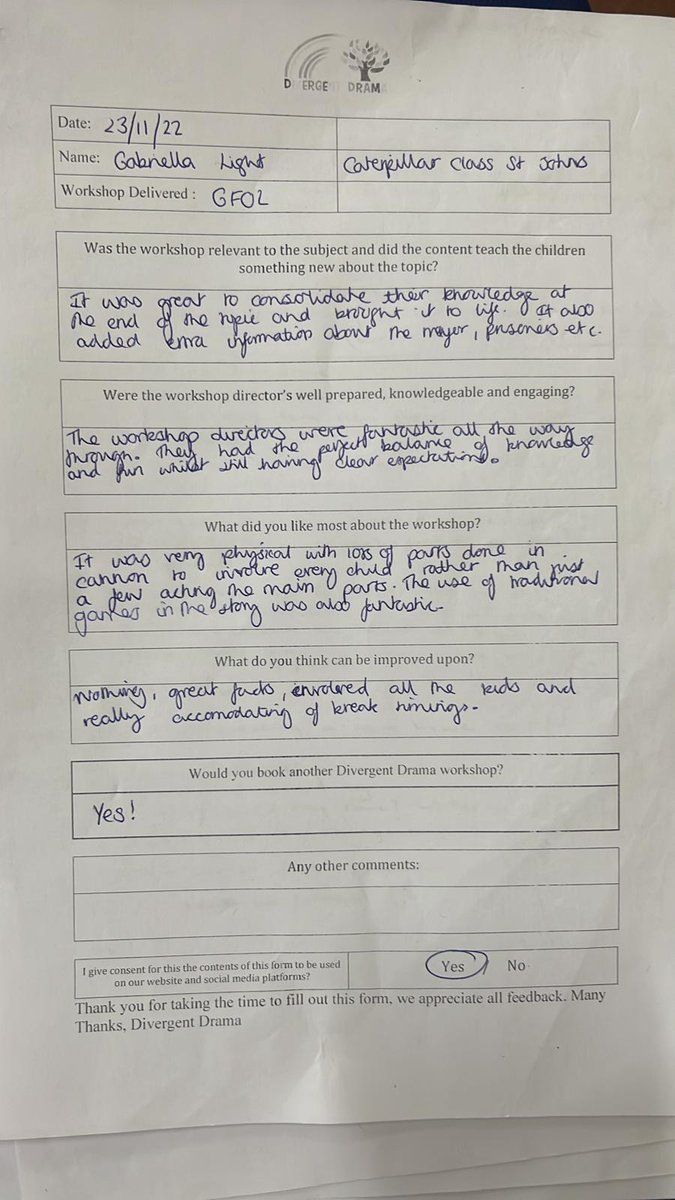 DIVERGENT DRAMA
Date: 23/11/22
Name: Gabriella Light
Caterpillar Class St Johns
Workshop Delivered : GFOL
Was the workshop relevant to the subject and did the content teach the children
something new about the topic?
It was great to consolidate their knowledge at
the end of the topic and brought it to life. It also
added extra information about the mayor, prisoners etc.
Were the workshop director's well prepared, knowledgeable and engaging?
The workshop directors were fantastic all the way
through. They had the perfect balance of knowledge
and fun whilst still having clear expectations.
What did you like most about the workshop?
It was very physical with lots of parts done in
cannon to involve every child rather than just
a few acting the main parts. The use of traditional
games in the story was also fantastic.
What do you think can be improved upon?
Nothing, great facts, involved all the kids and
really accomodating of break timings.
Would you book another Divergent Drama workshop?
Yes!
Any other comments:
I give consent for this the contents of this form to be used
on our website and social media platforms?
Yes No
Thank you for taking the time to fill out this form, we appreciate all feedback. Many
Thanks, Divergent Drama